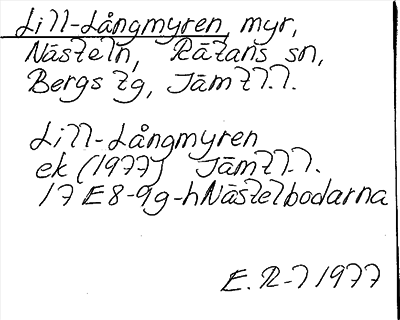 Lill-Långmyren, myr,
Nästeln, Rätans sn,
Bergs tg, Jämtl.l.
Lill-Långmyren
ek (1977) Jämtl.l.
17 E 8-9g-h Nästelbodarna
E. R-l 1977